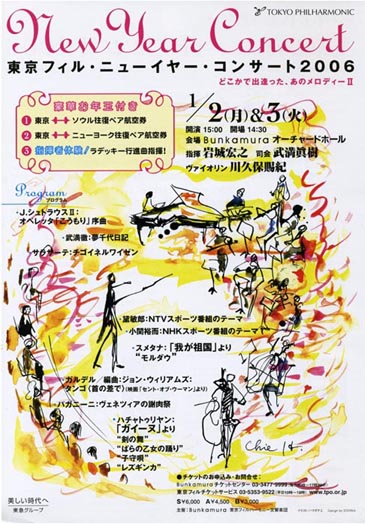 TOKYO PHILHARMONIC
New Year Concert
東京フィル・ニューイヤー・コンサート2006
どこかで出逢った、あのメロディーⅡ
豪華お年玉付き
1 東京 ソウル往復ペア航空券
2 東京 ニューヨーク往復ペア航空券
3 指揮者体験!ラデッキー行進曲指揮!
1/2(月)&3(火)
開演 15:00 開場 14:30
会場 Bunkamura オーチャードホール
指揮 岩城宏之 司会 武満眞樹
ヴァイオリン 川久保賜紀
Program
プログラム
・J.シュトラウスⅡ:
オペレッタ「こうもり」序曲
・武満徹:夢千代日記
・サラサーテ:チゴイネルワイゼン
・黛敏郎:NTVスポーツ番組のテーマ
・小関裕而:NHKスポーツ番組のテーマ
・スメタナ:「我が祖国」より
"モルダウ"
・ガルデル/編曲:ジョン・ウィリアムズ:
タンゴ(首の差で)(映画「セント・オブ・ウーマン」より)
・パガニーニ:ヴェネツィアの謝肉祭
・ハチャトゥリヤン:
「ガイーヌ」より
"剣の舞"
"ばらの乙女の踊り"
"子守唄"
"レズギンカ"
Chie H.
●チケットのお申込み・お問合せ:
Bunkamuraチケットセンター 03-3477-9999
東京フィルチケットサービス 03-5353-9522 www.tpo.or.jp
S¥6,000 A¥4,500 B¥3,000
主催:Bunkamura 東京フィルハーモニー交響楽団
美しい時代へ
東急グループ